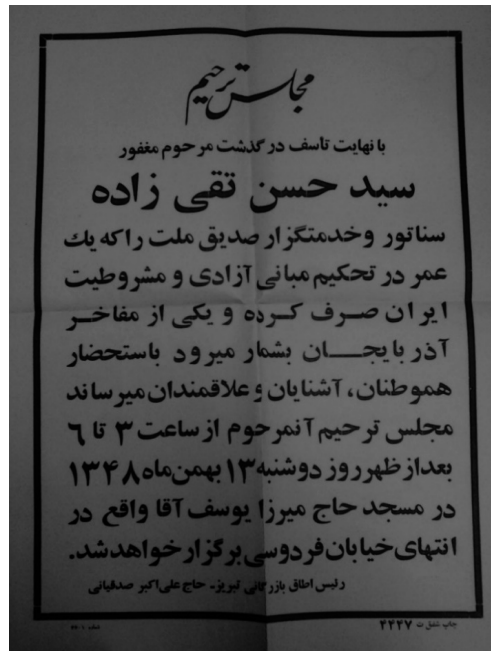 مجلس ترحیم
با نهایت تأسف درگذشت مرحوم مغفور
سید حسن تقی زاده
سناتور وخدمتگزار صدیق ملت را که یك
عمر در تحکیم مبانی آزادی و مشروطیت
ایران صرف کرده و یکی از مفاخر
آذربایجان بشمار میرود باستحضار
هموطنان، آشنایان و علاقمندان میرساند
مجلس ترحیم آنمرحوم از ساعت ۳ تا ۶
بعدازظهر روز دوشنبه ۱۳ بهمن ماه ۱۳۴۸
در مسجد حاج میرزا یوسف آقا واقع در
انتهای خیابان فردوسی برگزار خواهد شد.
رئیس اطاق بازرگانی تبریز- حاج علی اکبر صدقیانی
چاپ شفق ت ۴۴۲۷